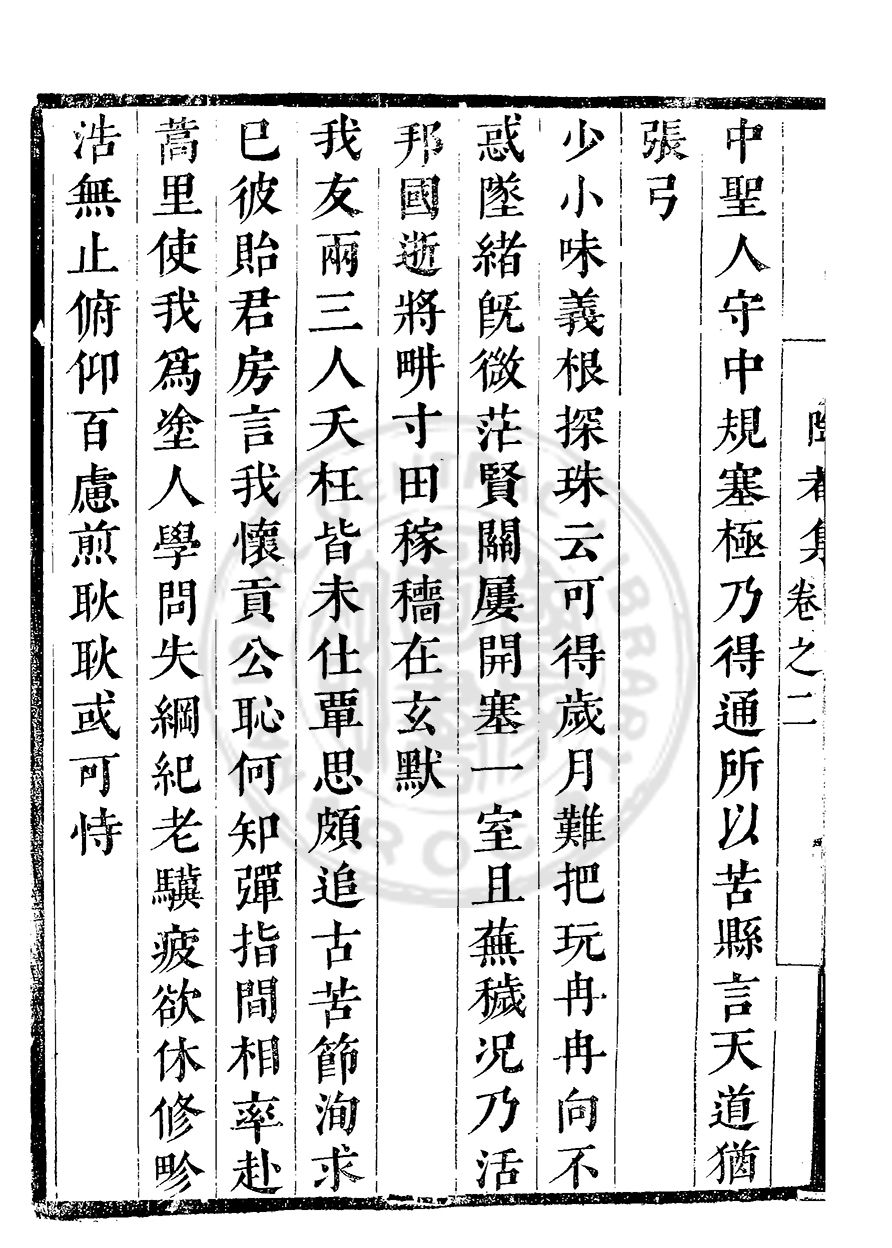 集卷之二
中聖人守中規塞極乃得通所以苦縣言天道猶
張弓
少小味義根探珠云可得歲月難把玩冉冉向不
惑墜緒旣微茫賢關屢開塞一室且蕪穢况乃活
邦國逝將畊寸田稼穡在玄默
我友兩三人夭枉皆未仕覃思頗追古苦節洵求
已彼貽君房言我懷貢公恥何知彈指間相率赴
蒿里使我爲塗人學問失綱紀老驥疲欲休修畛
浩無止俯仰百慮煎耿耿或可恃